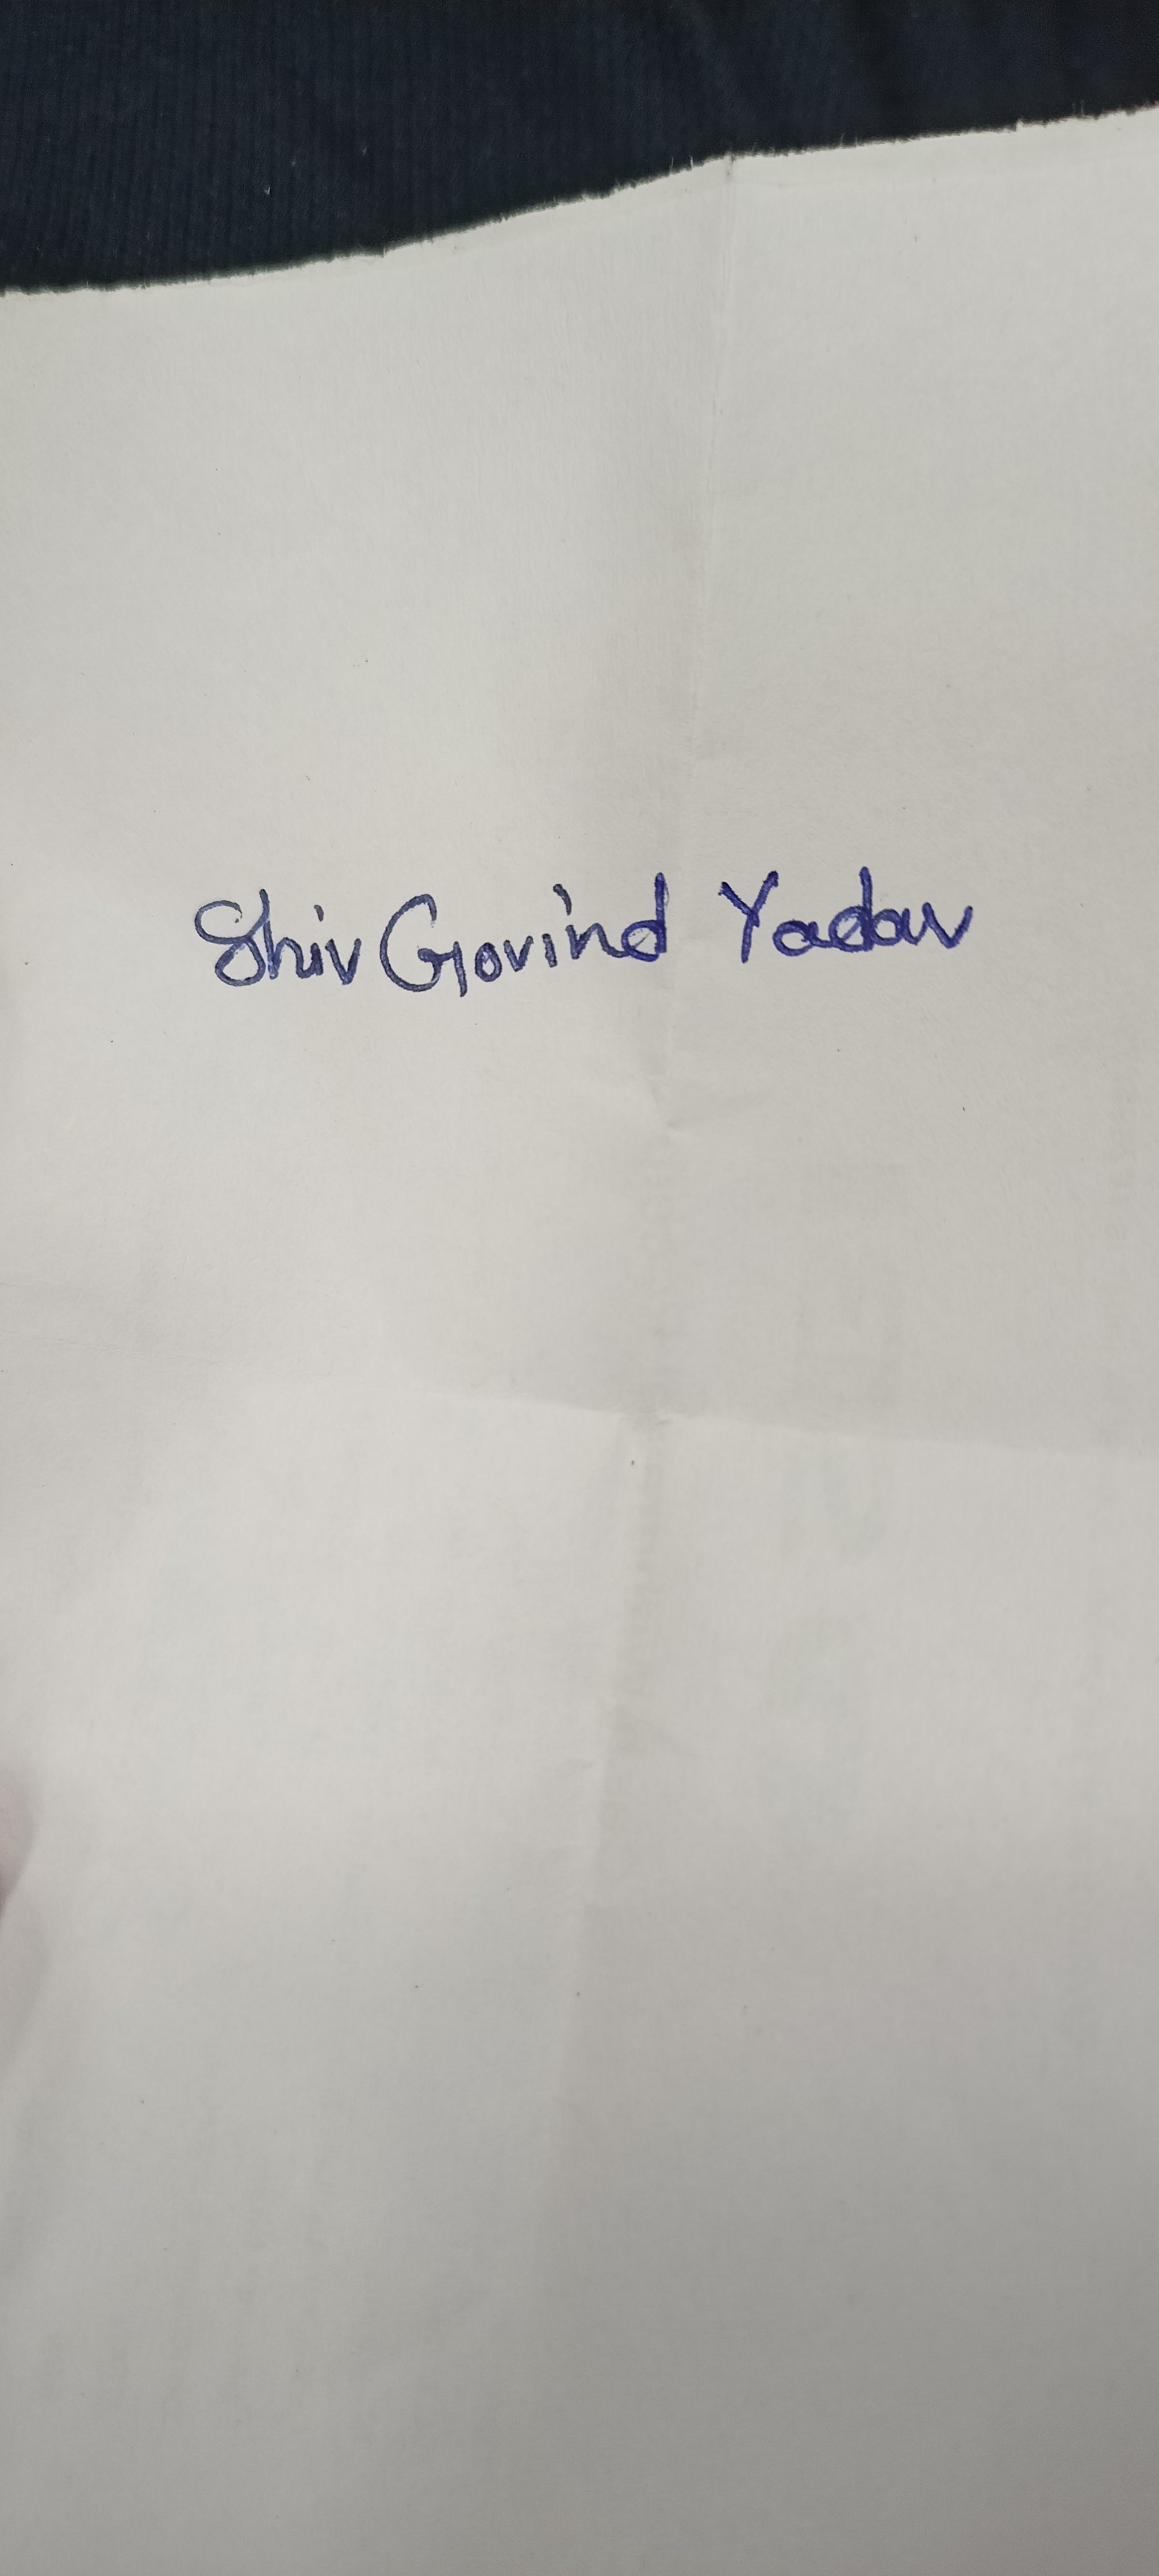 Shiv Govind Yadav